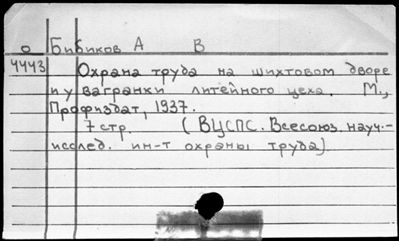 о Бибиков А В
4443 Охрана труда на шихтовом дворе
и у вагранки литейного цеха. М.,
Профиздат, 1937.
7 стр. (ВЦСПС. Всесоюз. науч.-
исслед. ин-т охраны труда)